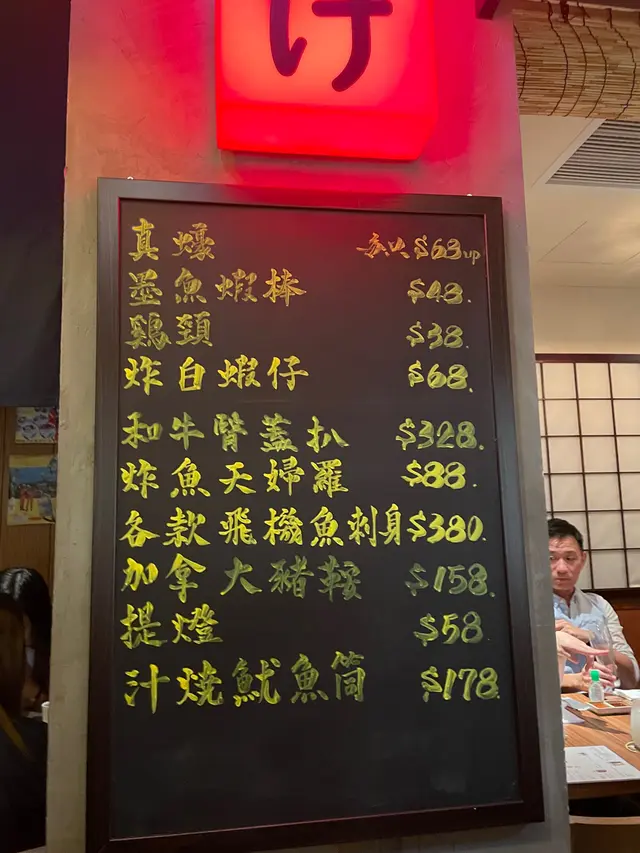 け
真蠔 $63up
墨魚蝦棒 $48.
鷄頸 $38.
炸白蝦仔 $68.
和牛臂蓋扒 $328.
炸魚天婦羅 $88.
各款飛機魚刺身 $380.
加拿大豬鞍 $158.
提燈 $58.
汁燒魷魚筒 $178